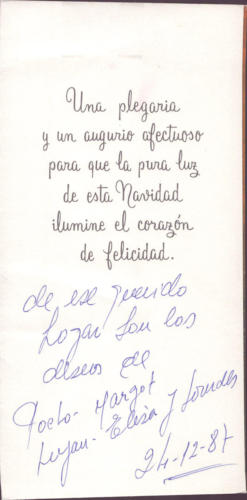 Una plegaria
y un augurio afectuoso
para que la pura luz
de esta Navidad
ilumine el corazón
de felicidad.
de ese querido
hogar son los
deseos de
Margot
Elisa y Lourdes
24-12-87